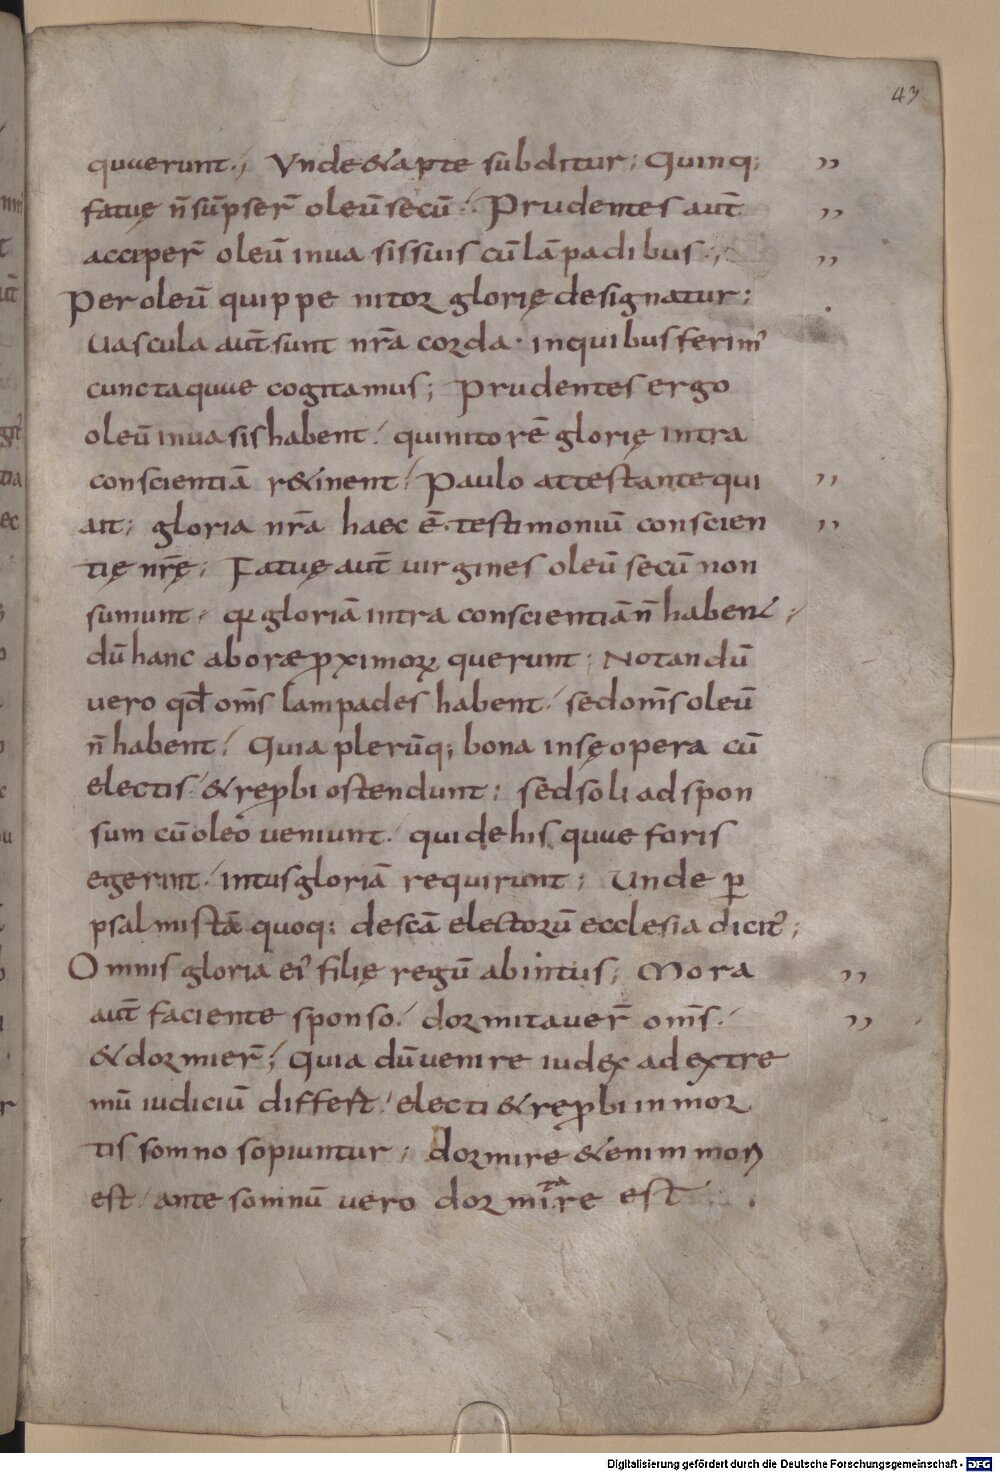 43
quuerunt·, Vnde & apte subditur; Quinq;
fatuę n̄ sūpser̄ oleū secū·. Prudentes aut̄
acciper̄ oleū in uasis suis cū lāpadibus·,
Per oleū quippe nitor glorię designatur;
Uascula aut̄ sunt nr̄a corda· in quibus ferim᾽
cuncta quue cogitamus; Prudentes ergo
oleū in uasis habent·/ qui nitorē glorię intra
conscientiā r&inent·/ Paulo attestante qui
ait; gloria nr̄a haec ē· testimoniū conscien
tię nr̄ę; Fatuę aut̄ uirgines oleū secū non
sumunt·/ q̄ gloriā intra conscientiā n̄ habent·/
dū hanc ab ore ꝓximoꝝ querunt; Notandū
uero qđ om̄s lampades habent·/ sed om̄s oleū
n̄ habent·/ Quia plerūq; bona in sę opera cū
electis·/ & reꝓbi ostendunt; sed soli ad spon
sum cū oleo ueniunt·/ qui de his quue foris
egerint·/ intus gloriā requirunt; Unde ꝑ
psalmistā quoq; de scā electorū ecclesia dicit᾽;
Omnis gloria ei᾽ filię regū ab intus; Mora
aut̄ faciente sponso·/ dormitauer̄ om̄s·/
& dormier̄·/ Quia dū uenire iudex ad extre
mū iudiciū differt·/ electi & reꝓbi in mor
tis somno sopiuntur; dormire &enim mori
est·/ ante somnū uero dormitare est
Digitalisierung gefördert durch die Deutsche Forschungsgemeinschaft - DFG